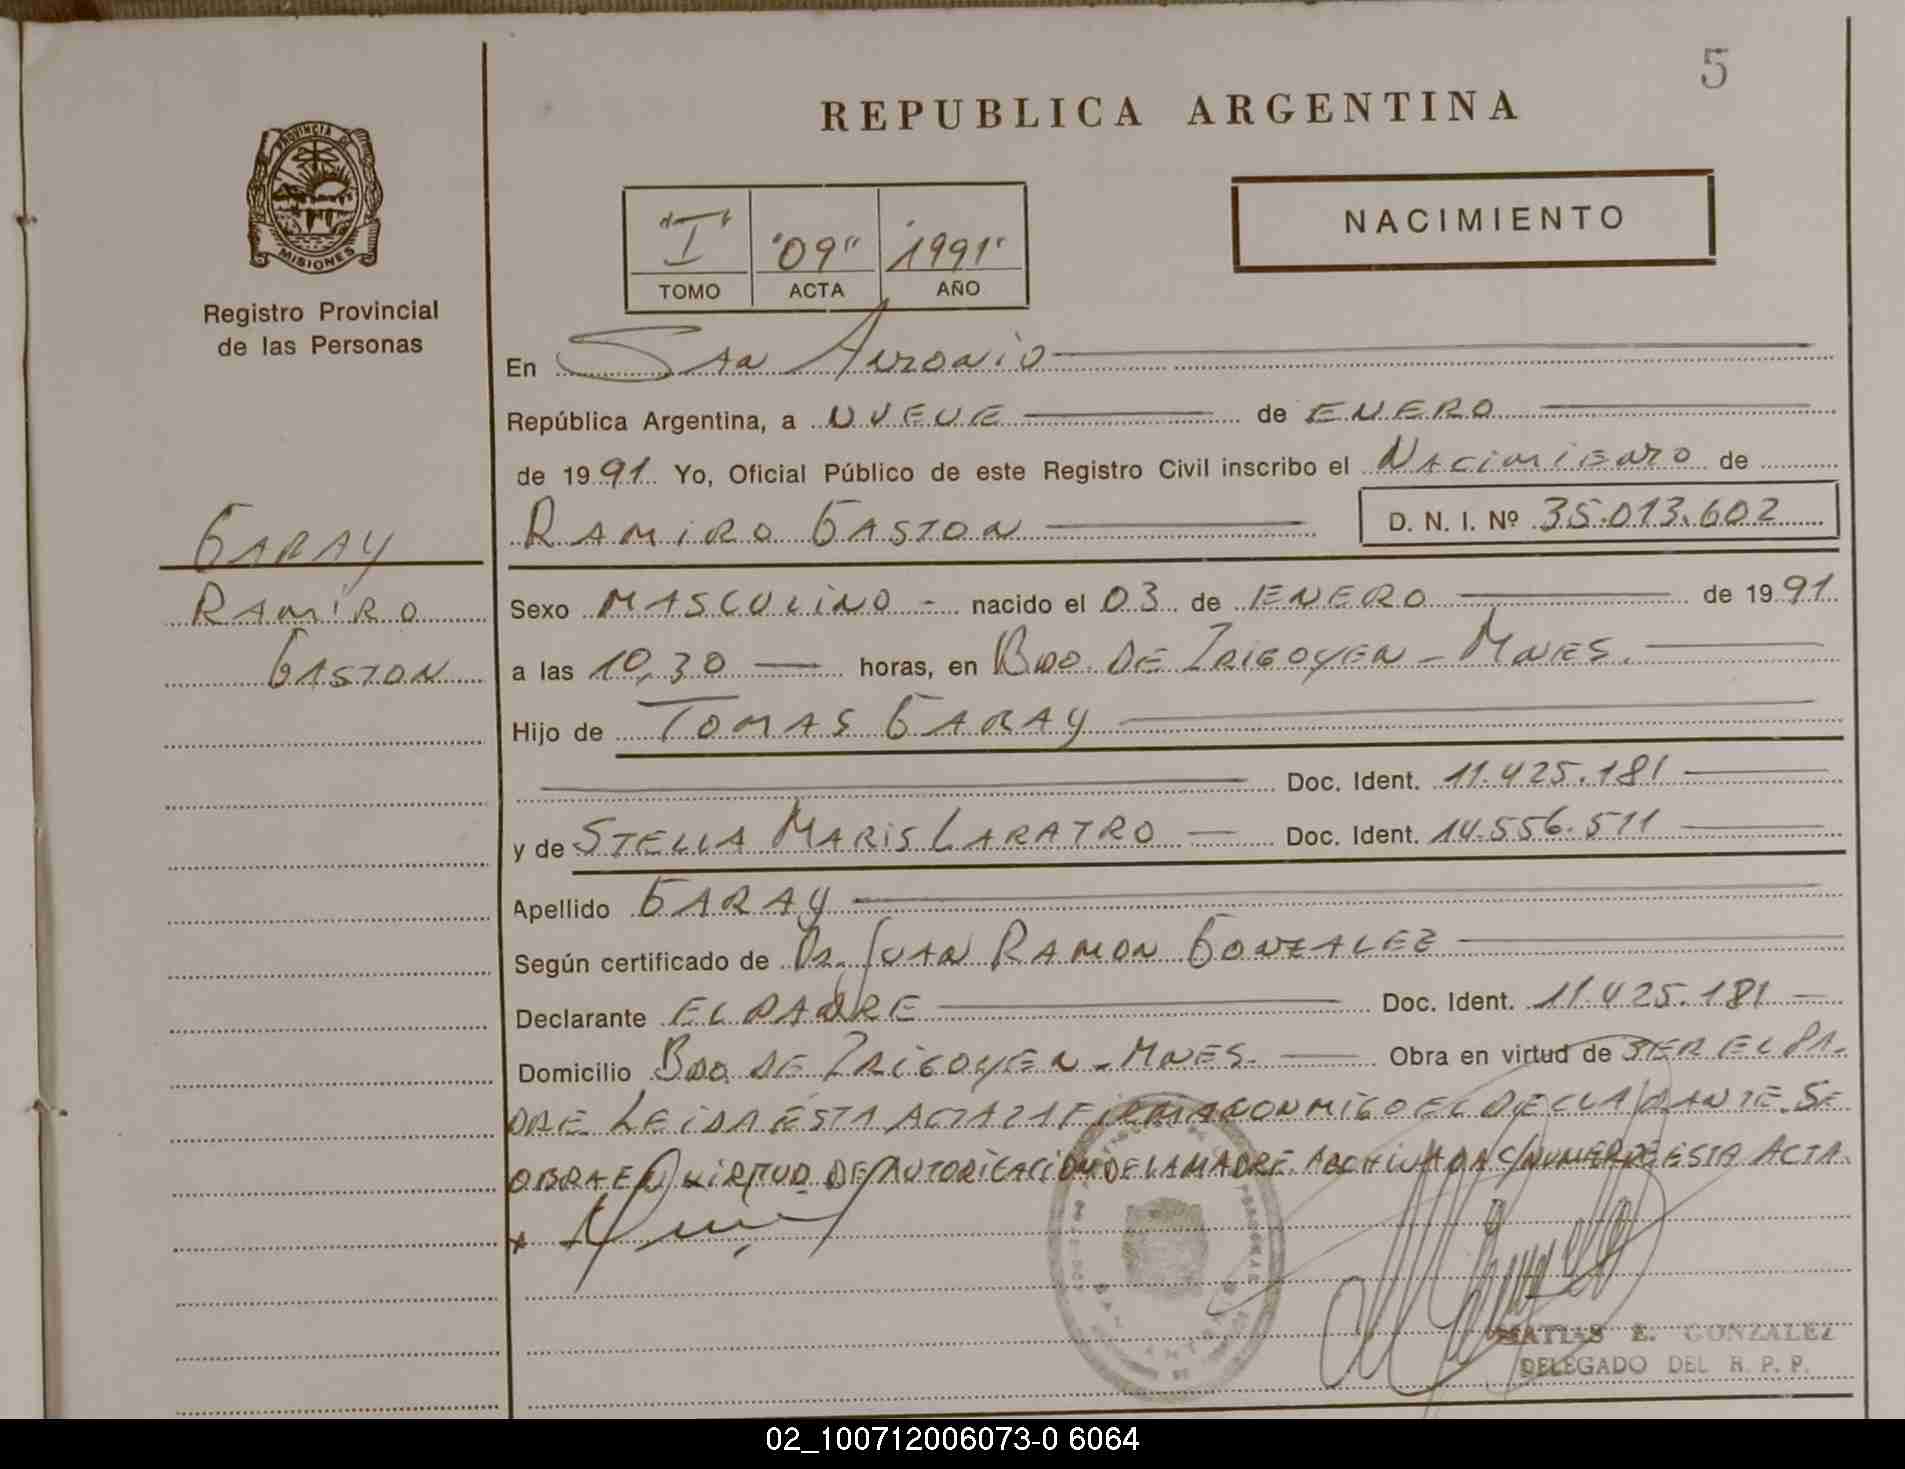 5
REPUBLICA ARGENTINA
PROVINCIA DE
MISIONES
Registro Provincial
de las Personas
"I" "09" "1991"
TOMO ACTA AÑO
NACIMIENTO
En San Antonio
República Argentina, a NUEVE de ENERO
de 1991 Yo, Oficial Público de este Registro Civil inscribo el Nacimiento de
RAMIRO GASTON D. N. I. Nº 35.013.602
GARAY
RAMIRO
GASTON
Sexo MASCULINO - nacido el 03 de ENERO de 1991
a las 10,30 horas, en Bdo. DE IRIGOYEN - MNES.
Hijo de TOMAS GARAY
Doc. Ident. 11.425.181
y de STELLA MARIS LARATRO Doc. Ident. 14.556.511
Apellido GARAY
Según certificado de Dr. JUAN RAMON GONZALEZ
Declarante EL PADRE Doc. Ident. 11.425.181
Domicilio Bdo. DE IRIGOYEN - MNES. Obra en virtud de SER EL PA-
DRE. LEIDA ESTA ACTA LA FIRMA CONMIGO EL DECLARANTE. SE
OBRA EN VIRTUD DE AUTORIZACION DE LA MADRE ARCHIVADA C/NUMERO ESTA ACTA.
MATIAS E. GONZALEZ
DELEGADO DEL R. P. P.
02_100712006073-0 6064